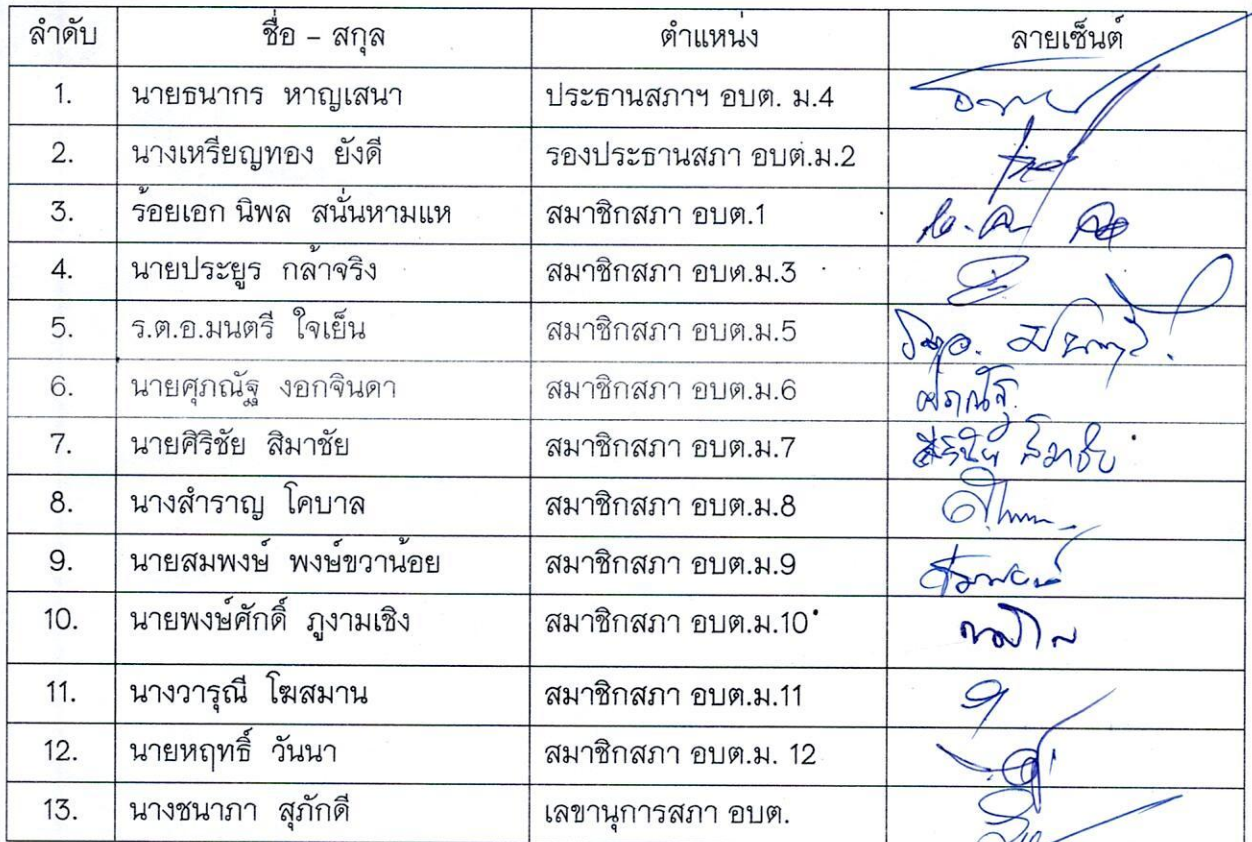 ลำดับ ชื่อ – สกุล ตำแหน่ง ลายเซ็นต์
1. นายธนากร หาญเสนา ประธานสภาฯ อบต. ม.4
2. นางเหรียญทอง ยังดี รองประธานสภา อบต.ม.2
3. ร้อยเอก นิพล สนั่นหามแห สมาชิกสภา อบต.1
4. นายประยูร กล้าจริง สมาชิกสภา อบต.ม.3
5. ร.ต.อ.มนตรี ใจเย็น สมาชิกสภา อบต.ม.5
6. นายศุภณัฐ งอกจินดา สมาชิกสภา อบต.ม.6 ศุภณัฐ
7. นายศิริชัย สิมาชัย สมาชิกสภา อบต.ม.7 ศิริชัย สิมาชัย
8. นางสำราญ โคบาล สมาชิกสภา อบต.ม.8
9. นายสมพงษ์ พงษ์ขวาน้อย สมาชิกสภา อบต.ม.9 สมพงษ์
10. นายพงษ์ศักดิ์ ภูงามเชิง สมาชิกสภา อบต.ม.10
11. นางวารุณี โฆสมาน สมาชิกสภา อบต.ม.11
12. นายหฤทธิ์ วันนา สมาชิกสภา อบต.ม. 12
13. นางชนาภา สุภักดี เลขานุการสภา อบต.